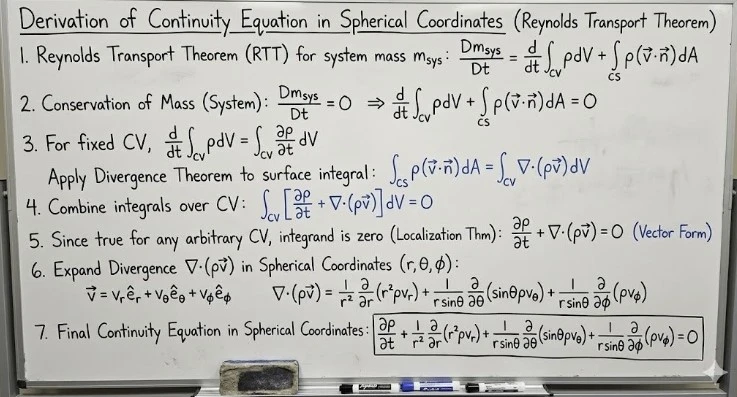 Derivation of Continuity Equation in Spherical Coordinates (Reynolds Transport Theorem)
1. Reynolds Transport Theorem (RTT) for system mass m_sys: Dm_sys/Dt = d/dt ∫_CV ρdV + ∫_CS ρ(v⃗·n⃗)dA
2. Conservation of Mass (System): Dm_sys/Dt = 0 ⇒ d/dt ∫_CV ρdV + ∫_CS ρ(v⃗·n⃗)dA = 0
3. For fixed CV, d/dt ∫_CV ρdV = ∫_CV ∂ρ/∂t dV
Apply Divergence Theorem to surface integral: ∫_CS ρ(v⃗·n⃗)dA = ∫_CV ∇·(ρv⃗)dV
4. Combine integrals over CV: ∫_CV [∂ρ/∂t + ∇·(ρv⃗)]dV = 0
5. Since true for any arbitrary CV, integrand is zero (Localization Thm): ∂ρ/∂t + ∇·(ρv⃗) = 0 (Vector Form)
6. Expand Divergence ∇·(ρv⃗) in Spherical Coordinates (r, θ, ϕ):
v⃗ = v_r ê_r + v_θ ê_θ + v_ϕ ê_ϕ ∇·(ρv⃗) = 1/r² ∂/∂r (r²ρv_r) + 1/(r sinθ) ∂/∂θ (sinθρv_θ) + 1/(r sinθ) ∂/∂ϕ (ρv_ϕ)
7. Final Continuity Equation in Spherical Coordinates: ∂ρ/∂t + 1/r² ∂/∂r (r²ρv_r) + 1/(r sinθ) ∂/∂θ (sinθρv_θ) + 1/(r sinθ) ∂/∂ϕ (ρv_ϕ) = 0